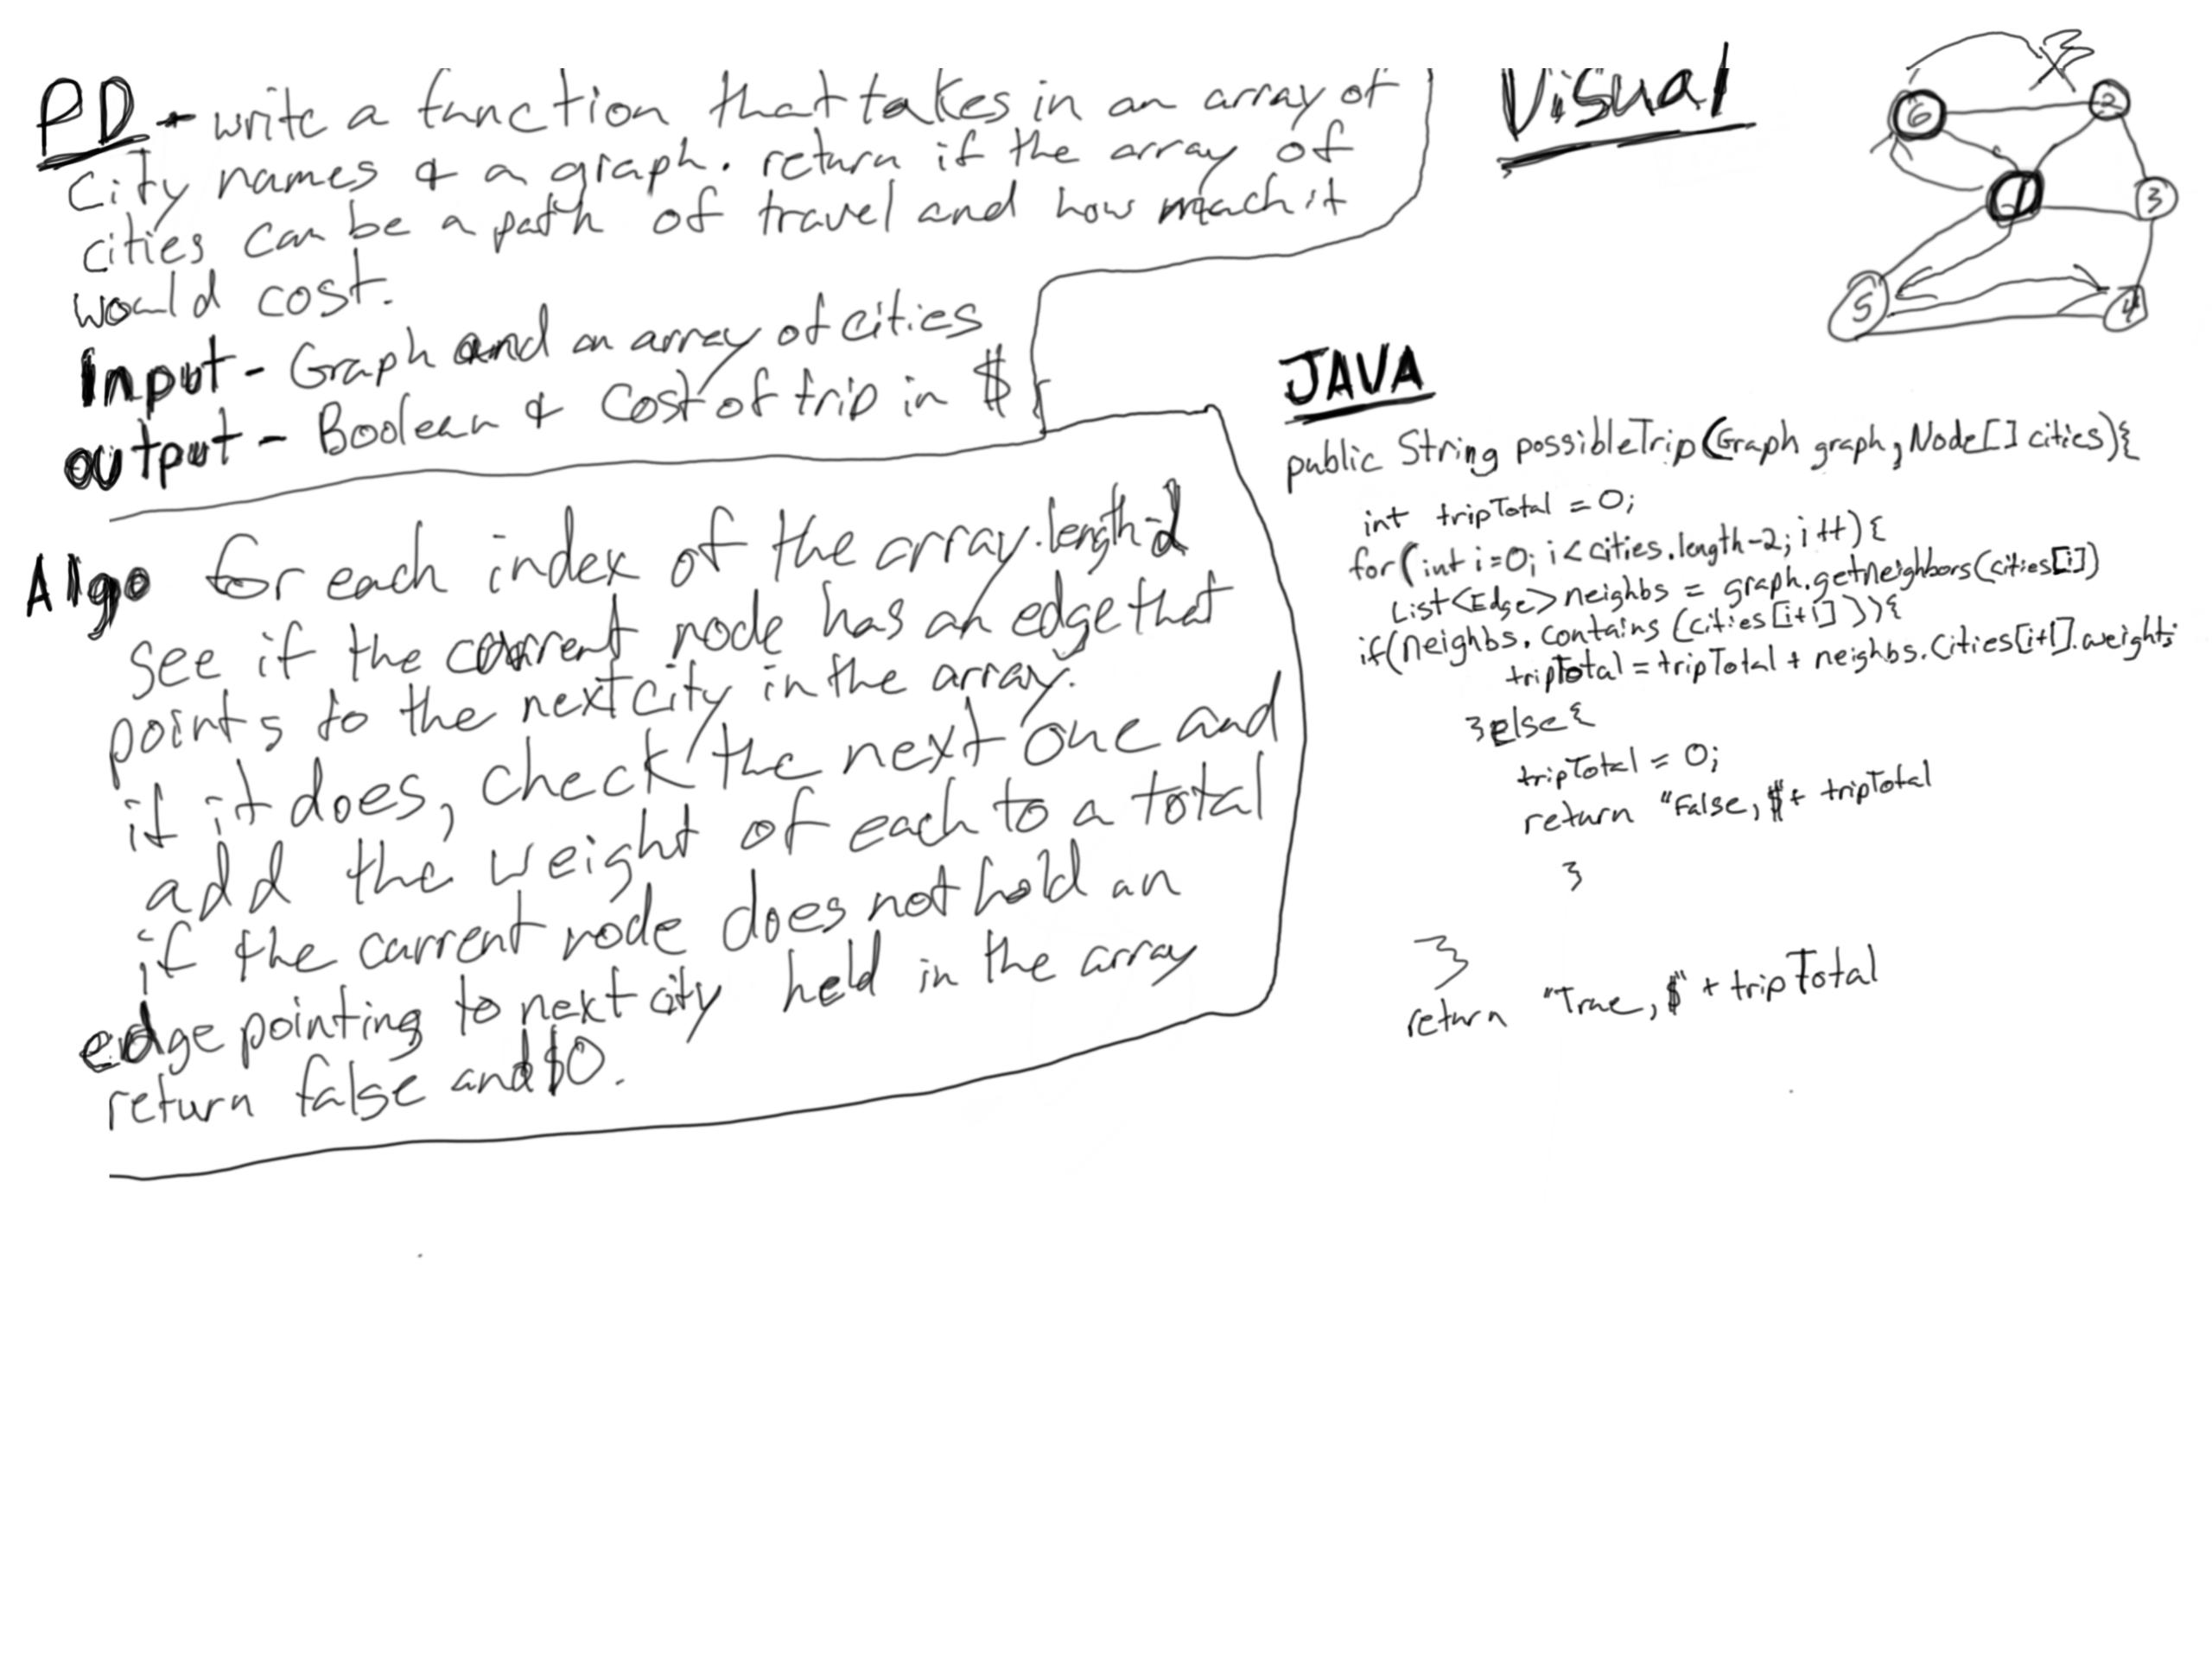 PD - write a function that takes in an array of
city names & a graph. return if the array of
cities can be a path of travel and how much it
would cost.
Input - Graph and an array of cities
output - Boolean & Cost of trip in $
Algo for each index of the array.length-2
see if the current node has an edge that
points to the next city in the array.
if it does, check the next one and
add the weight of each to a total
if the current node does not hold an
edge pointing to next city held in the array
return false and $0.
Visual
6
2
1
3
5
4
JAVA
public String possibleTrip(Graph graph, Node[] cities){
int tripTotal = 0;
for(int i=0; i<cities.length-2; i++){
List<Edge> neighbs = graph.getNeighbors(cities[i])
if(neighbs.contains(cities[i+1])){
tripTotal = tripTotal + neighbs.cities[i+1].weight;
}else{
tripTotal = 0;
return "False, $+ tripTotal
}
}
return "True, $" + tripTotal